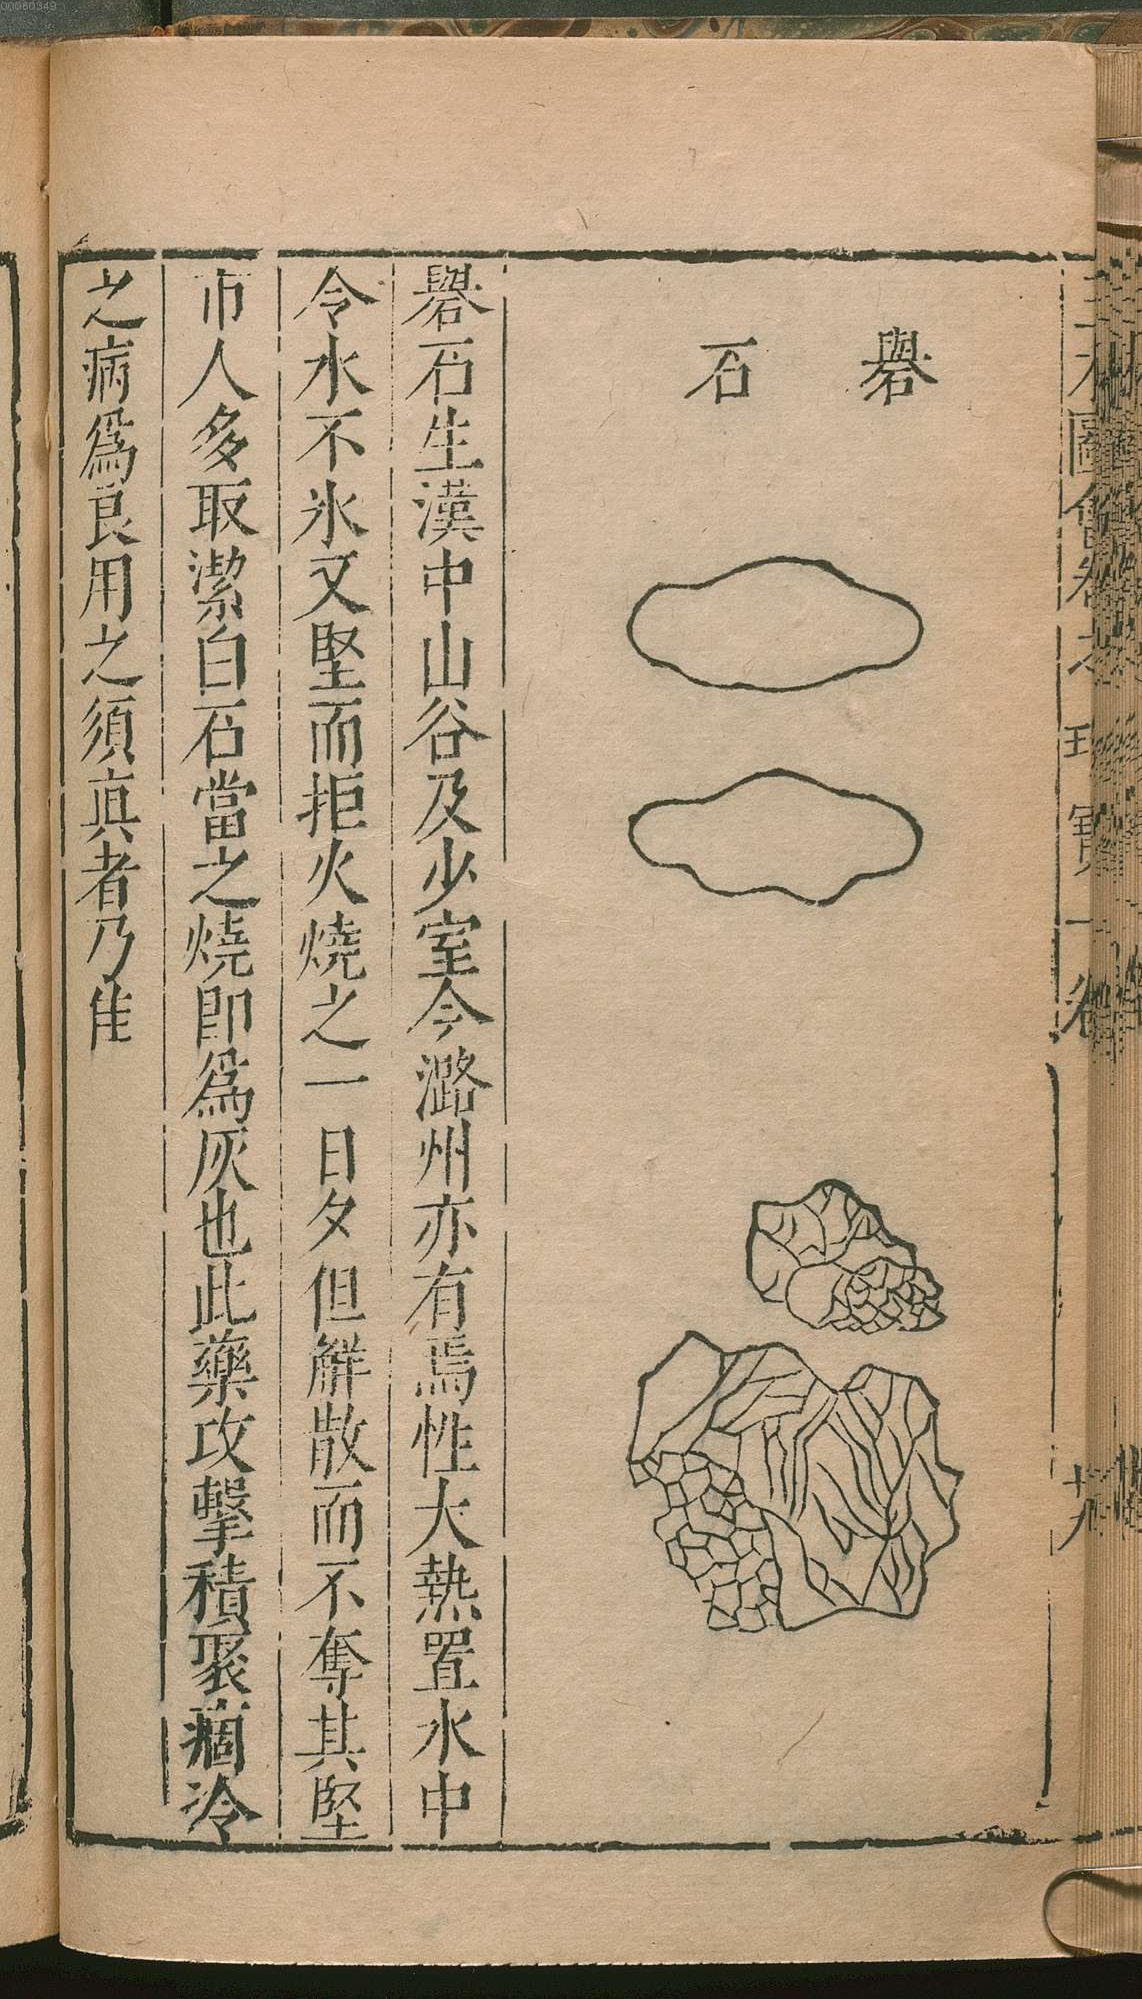 00060349
礜石
礜石生漢中山谷及少室今潞州亦有焉性大熱置水中
令水不氷又堅而拒火燒之一日夕但解散而不奪其堅
市人多取潔白石當之燒即爲灰也此藥攻擊積聚痼冷
之病爲良用之須真者乃佳